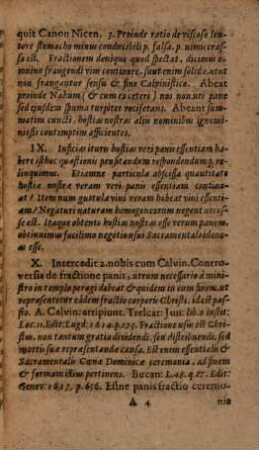 quit Canon Nicen. 3. Proinde ratio de viscoso len-
tore stomacho minus conducibili p. falsa, p. nimis cras-
sa est. Fractionem denique quod spectat, dicimus o-
mnino frangendi vim continere, sunt enim solidæ, ut ut
non frangantur sensu & fine Calvinistico. Abeat
proinde Nahum (& cum cæteri) nos non uti pane
sed ejusdem spuma turpiter vociferans. Abeant sum-
matim cuncti, hostias nostras alio nominibus ignomi-
niosis contemptim afficientes.
IX. Inficias itur hostias veri panis essentiam ha-
bere isthoc quæstionis pensitandum respondendumq; re-
linquimus. Etiamne particula abscissa quantitate
hostiæ nostræ veram veri panis essentiam contine-
at? Item num gustula vini veram habeat vini essenti-
am? Negaturi naturam homogeneorum negent neces-
se est. itaque obtento hostias nostras esse verum panem,
obtinuimus facilimo negotio usus Sacramentalis idone-
as esse.
X. Intercedit 2. nobis cum Calvin. Contro-
versia de fractione panis, utrum necessario à mini-
stro in templo peragi debeat & quidem in eum finem, ut
repræsentetur eâdem fractio corporis Christi. id est pas-
sio. A. Calvin: arripiunt. Trelcat: Jun: lib. 2 instit:
Loc. 11. Edit: Lugd: 1614. p. 223. Fractione usu est Chri-
stus, non tantum gratia dividendi, seu distribuendi, sed
mortis suæ repræsentandæ causa. Est enim essentialis &
Sacramentalis Cœnæ Dominicæ ceremonia, ad finem
& formam illius pertinens. Bucan: L. 48. q. 27. Edit:
Genev: 1617. p. 656. Estne panis fractio ceremo-
A 4 nia